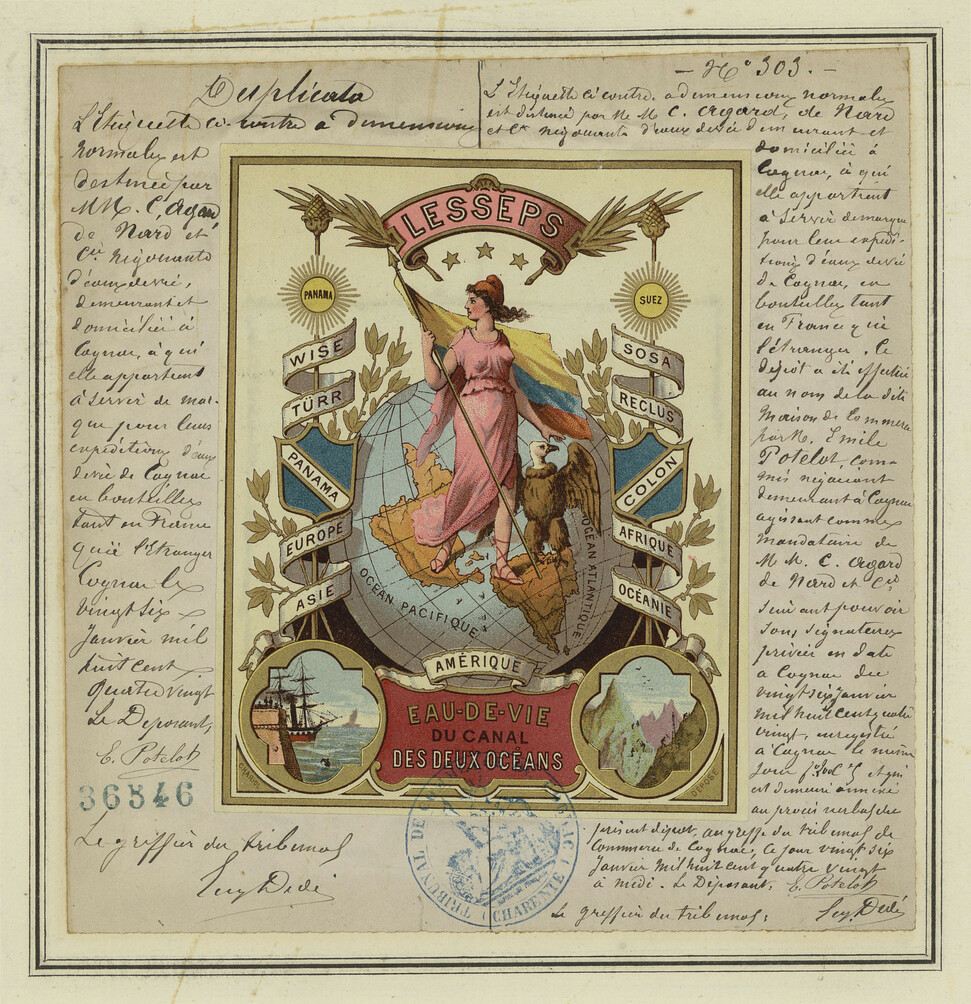 Duplicata
L'Etiquette ci-contre a dimensions
normales est
destinée par
MM. C. Agard
de Nard et
Cie négociants
d'eaux devie,
demeurant et
domiciliés à
Cognac, à qui
elle appartient
à servir de mar-
que pour leurs
expéditions d'eaux
devie de Cognac
en bouteilles
tant en France
qu'à l'étranger
Cognac le
vingt six
Janvier mil
huit cent
quatre vingt
Le Déposant,
E. Potelot
36846
Le greffier du tribunal
— No 303. —
L'Etiquette ci contre, a dimensions normales
est destinée par M. M. C. Agard, de Nard
et Cie négociants d'eaux devie demeurant et
domiciliés à
Cognac, à qui
elle appartient
a servir de marque
pour leur expédi-
tions d'eaux devie
de Cognac, en
bouteilles tant
en France qu'à
l'étranger. Ce
dépôt a été effectué
au nom de la dite
Maison de Commerce
par M. Emile
Potelot, com-
mis négociant
demeurant à Cognac
agissant comme
mandataire de
M. M. C. Agard
de Nard et Cie
suivant pouvoir
sous signatures
privées en date
à Cognac du
vingt six janvier
mil huit cent quatre
vingt, enregistré
à Cognac le même
jour et qui
est demeuré annexé
au procès verbal du
présent dépôt, au greffe du tribunal de
Commerce de Cognac, ce jour vingt six
Janvier mil huit cent quatre vingt
à midi. Le Déposant, E. Potelot
Le greffier du tribunal,
LESSEPS
PANAMA
SUEZ
WISE
SOSA
TÜRR
RECLUS
PANAMA
COLON
EUROPE
AFRIQUE
ASIE
OCÉANIE
OCÉAN PACIFIQUE
OCÉAN ATLANTIQUE
AMÉRIQUE
EAU-DE-VIE
DU CANAL
DES DEUX OCÉANS
DÉPOSÉ
TRIBUNAL DE
CHARENTE